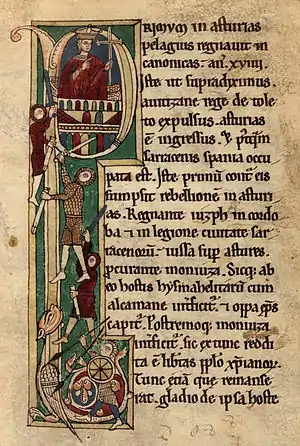 PRIMUM in asturias
pelagius regnavit in
canonicas. an̄. xviiii.
Iste ut supradiximus.
a uitizane rege de tole
to expulsus. asturias
ē ingressus. & p̄tq̄m
sarracenis spania occu
pata est. Iste primū cont̄ eis
sumpsit rebellionē in asturi
as. Regnante iuzph in cordo
ba & in legione ciuitate sar
racenorū iussa sup̄ astures
p̄curante monniza. Sicq; ab
eo hostis hysmahelitarū cum
alcamane int̄ficit̄. & oppa ep̄s
capit̄. Postremoq; monniza
int̄ficit̄. sic ex tunc reddi
ta ē lib̄tas pp̄lo xp̄ianor̄.
Tunc etiā que remanse
rat. gladio de ipsa hoste